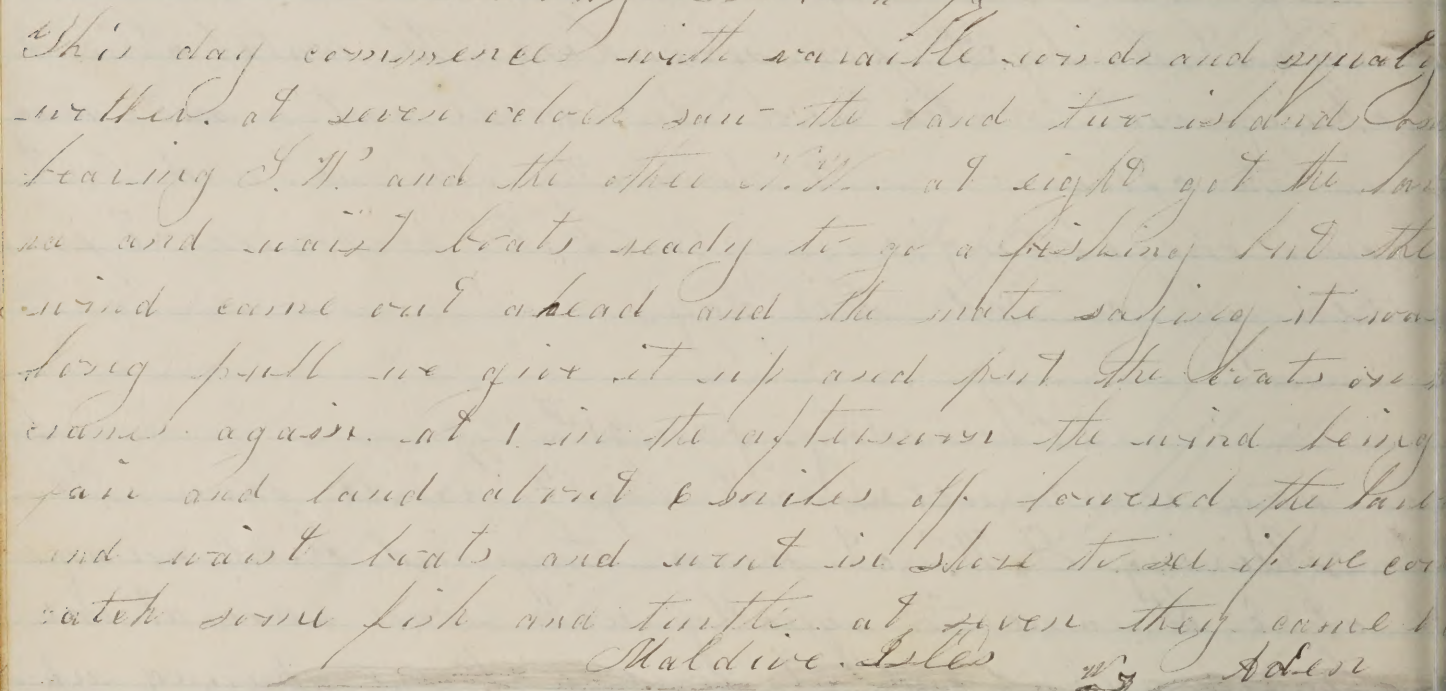 This day commences with varaible winds and squaly
wether. at seven oclock saw the land two islands
bearing S.W. and the other N.W. at eight got the lar
and waist boats ready to go a fishing but the
wind came out ahead and the mate saying it was
long pull we give it up and put the boats on
cranes again. at 1 in the afternoon the wind being
fair and land about 6 miles off lowered the larb
and waist boats and went in shore to see if we cou
catch some fish and turtle. at seven they came
Maldive. Isles Aden